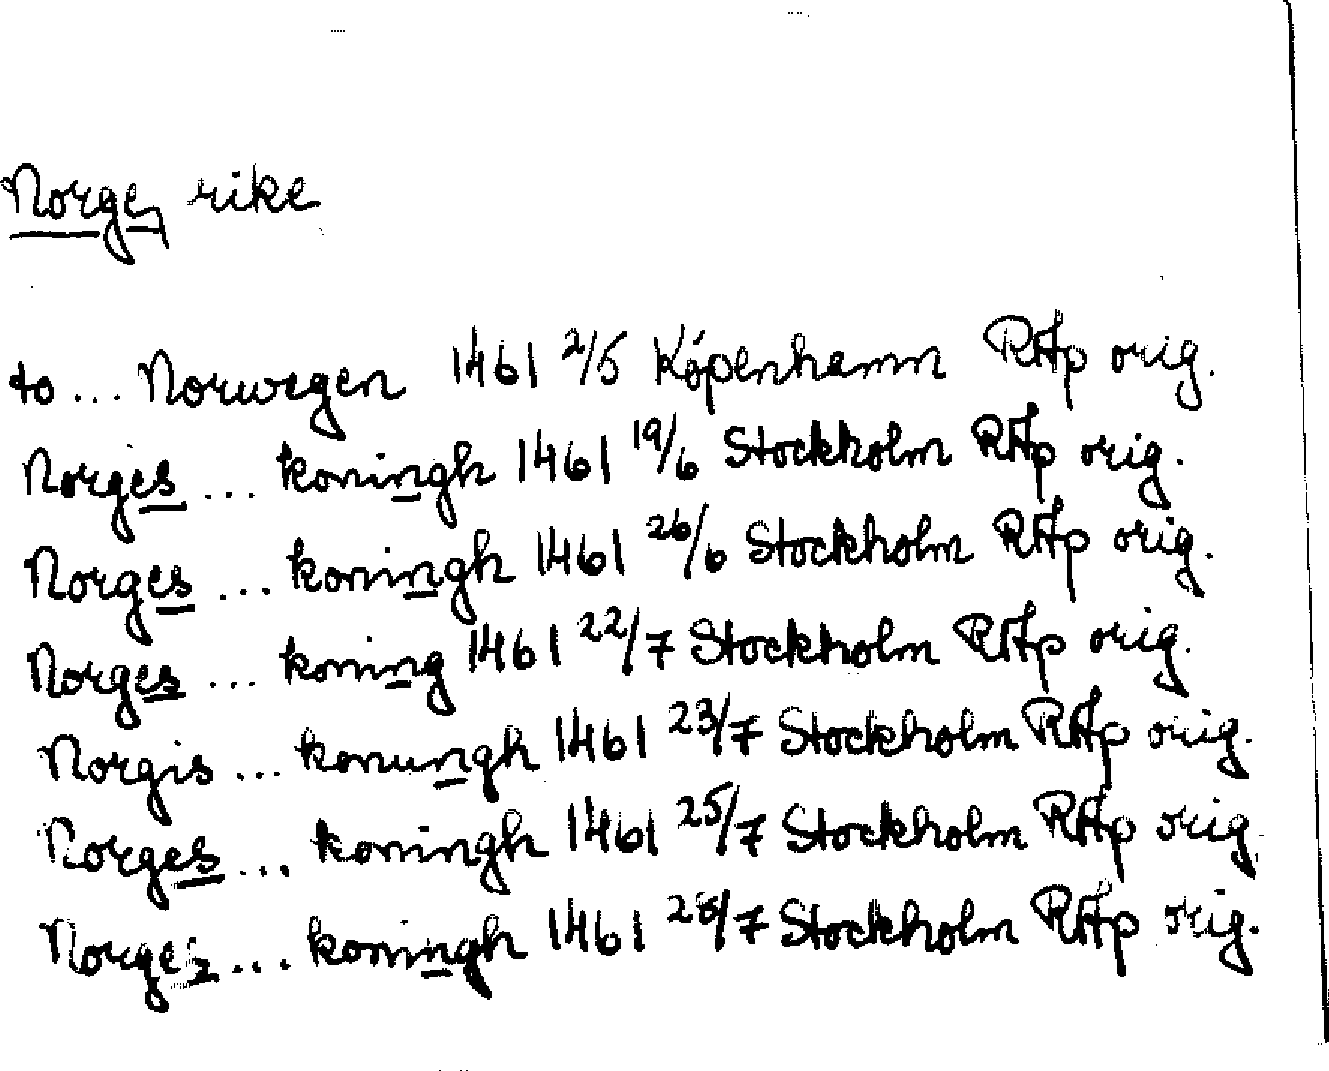 Norges rike
to ... Norwegen 1461 2/5 Köpenhamn RAp orig.
Norges ... koningh 1461 19/6 Stockholm RAp orig.
Norges ... koningh 1461 26/6 Stockholm RAp orig.
Norges ... koning 1461 22/7 Stockholm RAp orig.
Norgis ... konungh 1461 23/7 Stockholm RAp orig.
Norges ... koningh 1461 25/7 Stockholm RAp orig.
Norges ... koningh 1461 28/7 Stockholm RAp orig.